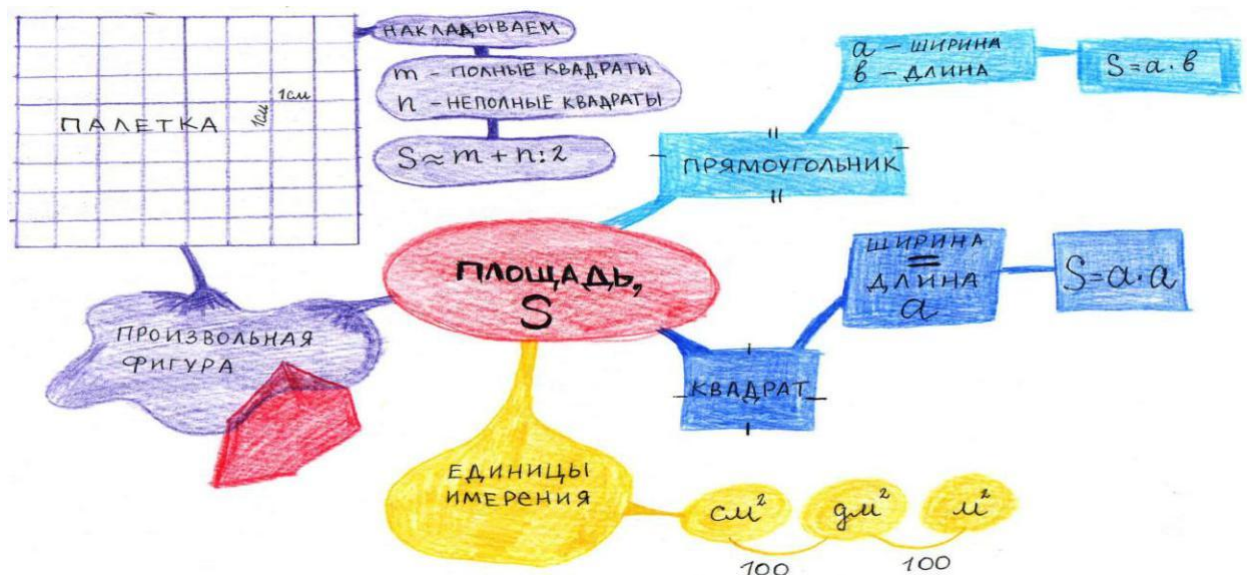 ПАЛЕТКА
1см
1см
НАКЛАДЫВАЕМ
m – ПОЛНЫЕ КВАДРАТЫ
n – НЕПОЛНЫЕ КВАДРАТЫ
S ≈ m + n : 2
a – ШИРИНА
в – ДЛИНА
S = a · в
ПРЯМОУГОЛЬНИК
ПЛОЩАДЬ,
S
ШИРИНА
=
ДЛИНА
a
S = a · a
КВАДРАТ
ПРОИЗВОЛЬНАЯ
ФИГУРА
ЕДИНИЦЫ
ИМЕРЕНИЯ
см² дм² м²
100 100